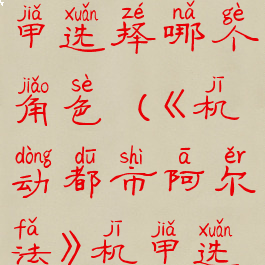 jiǎ xuǎn zé nǎ gè
甲选择哪个
jiǎo sè jī
角色（《机
dòng dū shì ā ěr
动都市阿尔
fǎ jī jiǎ xuǎn
法》机甲选